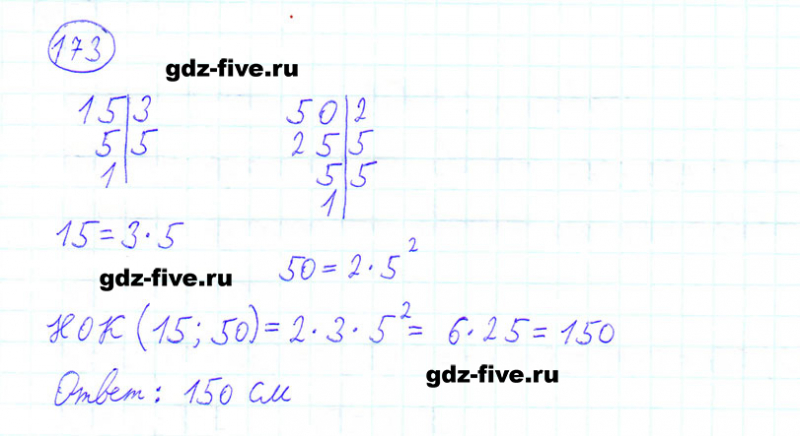 173
gdz-five.ru
15|3
5|5
1|
50|2
25|5
5|5
1|
15 = 3 · 5
gdz-five.ru
50 = 2 · 5²
НОК (15; 50) = 2 · 3 · 5² = 6 · 25 = 150
gdz-five.ru
Ответ: 150 см